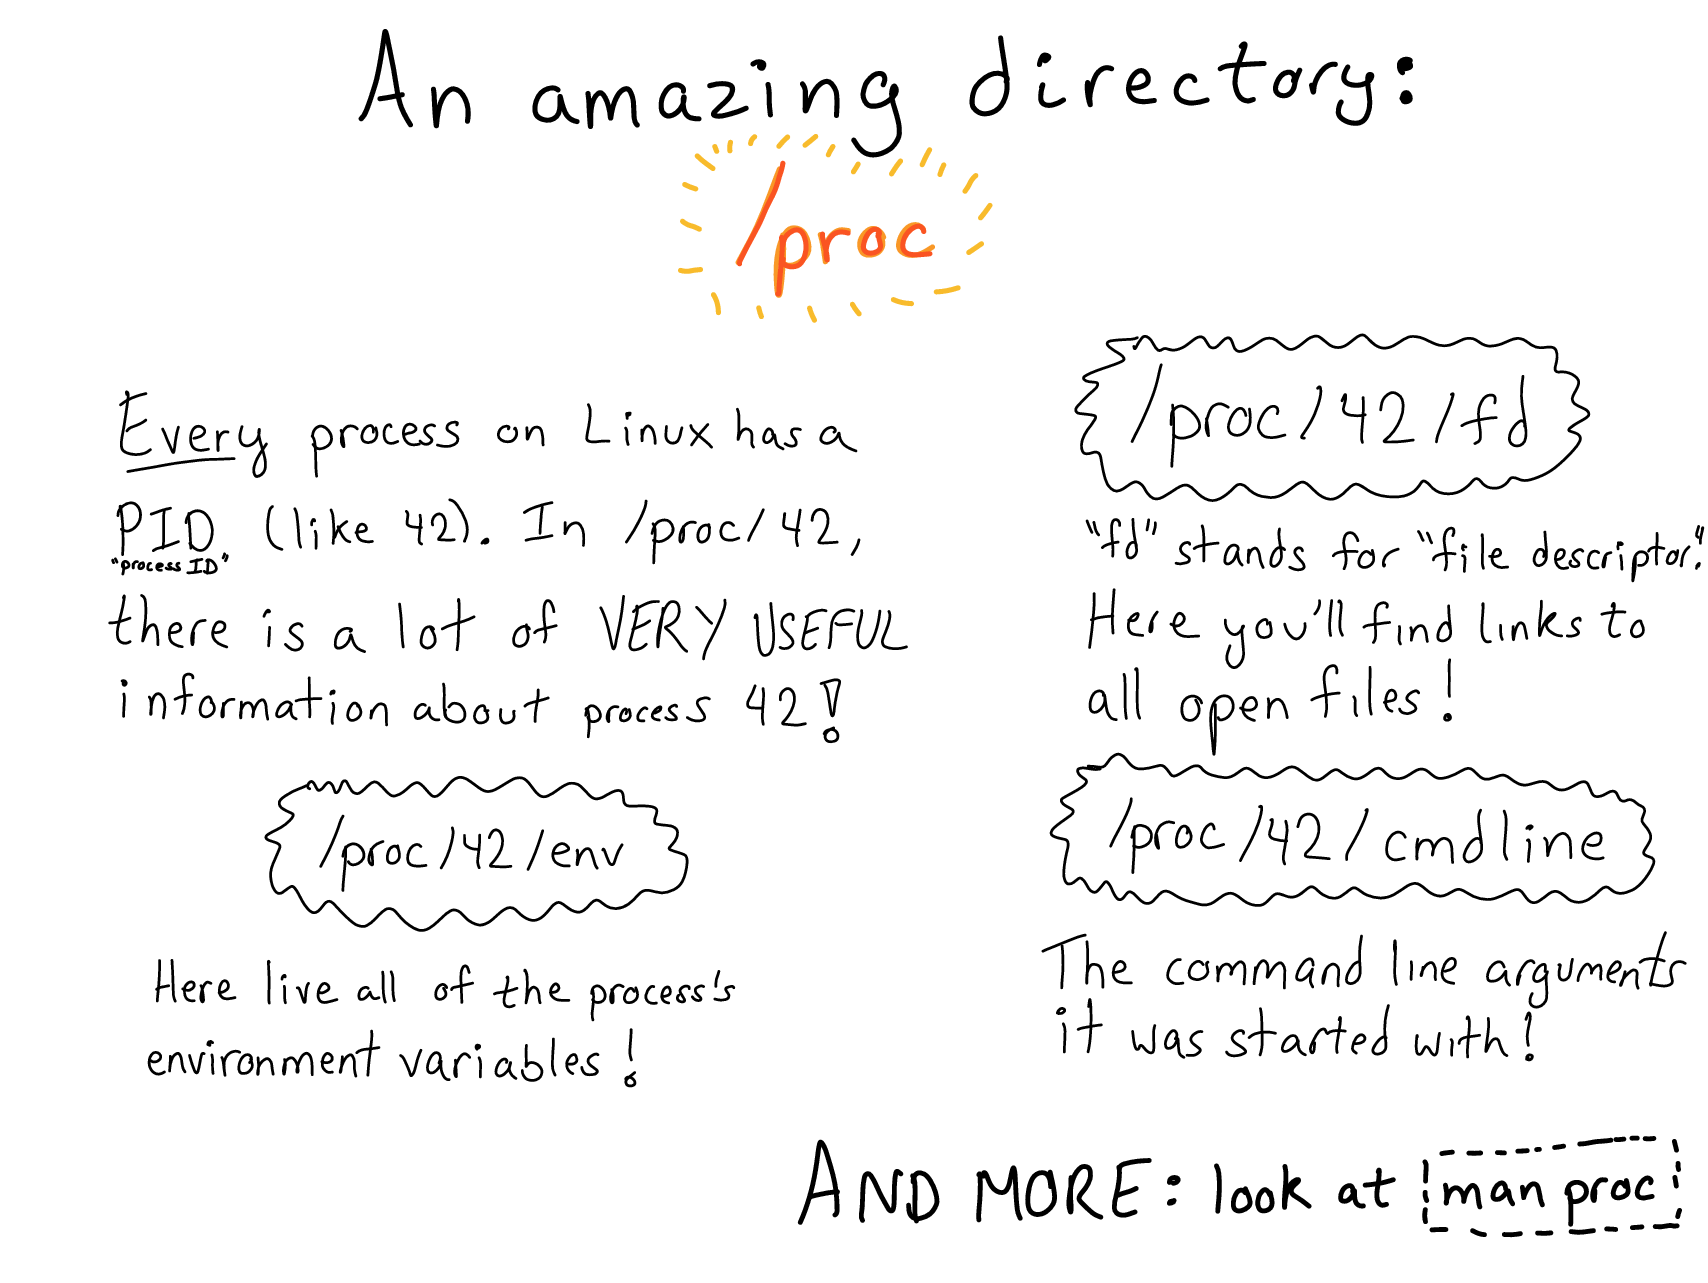 An amazing directory:
/proc
Every process on Linux has a
PID (like 42). In /proc/42,
"process ID"
there is a lot of VERY USEFUL
information about process 42!
/proc/42/env
Here live all of the process's
environment variables!
/proc/42/fd
"fd" stands for "file descriptor."
Here you'll find links to
all open files!
/proc/42/cmdline
The command line arguments
it was started with!
AND MORE: look at man proc